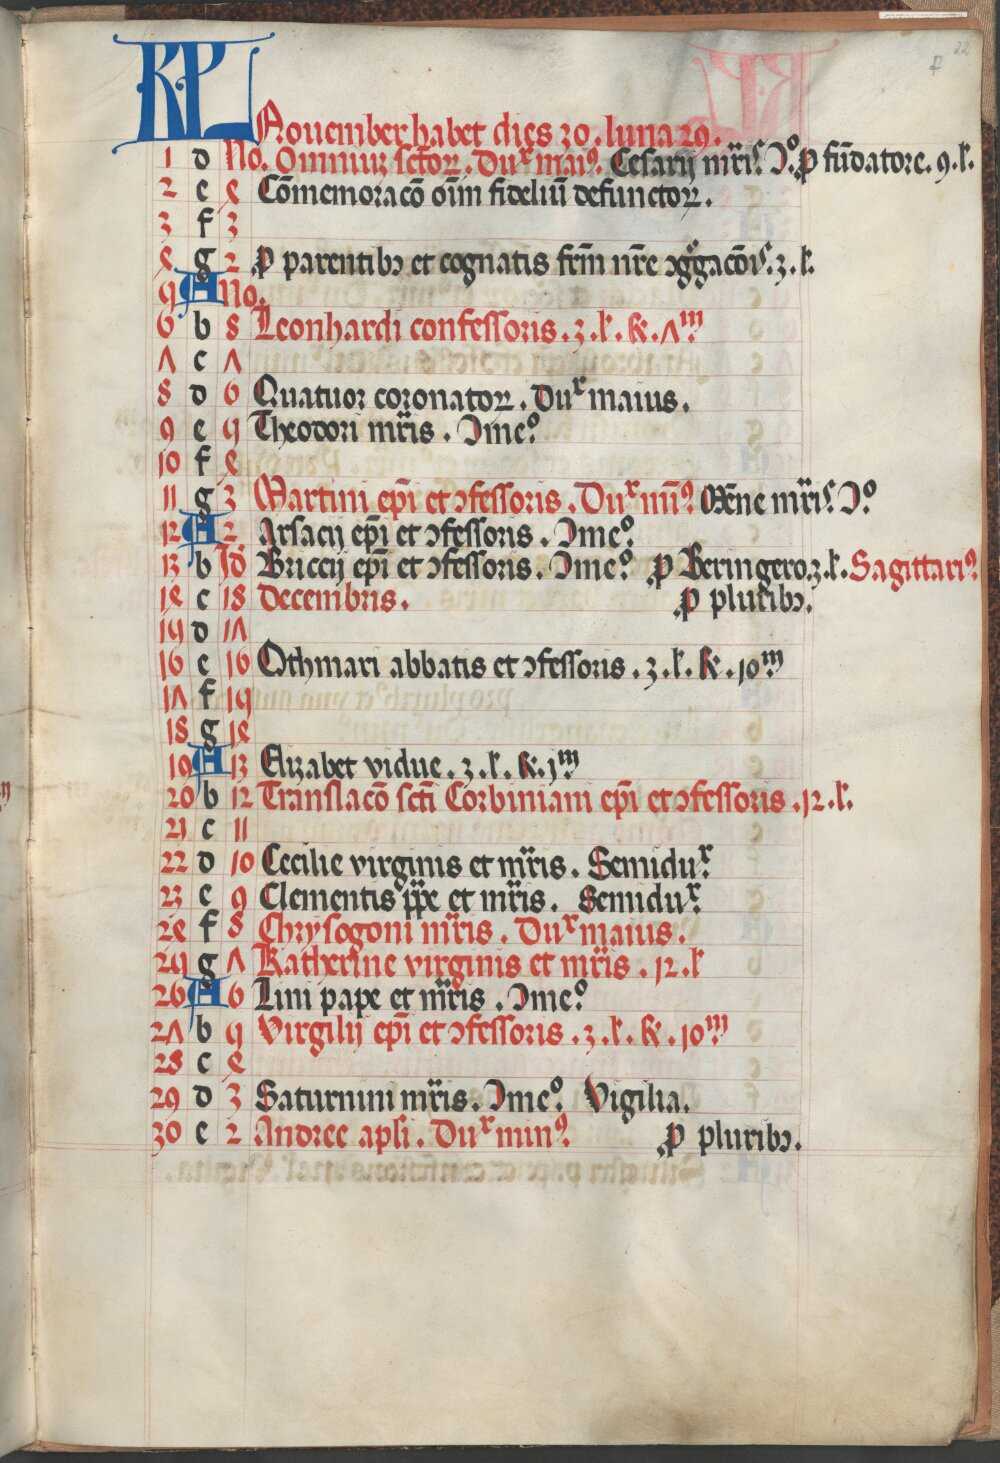 22
KL
Nouember habet dies 30. luna 29.
1 d No. Omniũ sctoꝝ. Duˣ maiꝰ. Cesarij mr̃is. Ↄ.º ꝓ fũdatore. 9. l'.
2 e 4 Cõmemoracõ oĩm fideliũ defunctoꝝ.
3 f 3
4 g 2 ꝓ parentibꝰ et cognatis frm̃ nr̃e ꝯg̃gacõis. 3. l'.
5 A No.
6 b 8 Leonhardi confessoris. 3. l'. k'. 7ᵐ
7 c 7
8 d 6 Quatuor coronatoꝝ. Duˣ maius.
9 e 5 Theodori mr̃is. Ↄmeº
10 f 4
11 g 3 Martini ep̃i et ꝯfessoris. Duˣ miñꝰ Mẽne mr̃is. Ↄº
12 A 2 Arsacij ep̃i et ꝯfessoris. Ↄmeº
13 b Id' Briccij ep̃i et ꝯfessoris. Ↄmeº ꝓ Beringero. 3. l'. Sagittariꝰ
14 c 18 Decembris. ꝓ pluribꝰ.
15 d 17
16 e 16 Othmari abbatis et ꝯfessoris. 3. l'. k'. 10ᵐ
17 f 15
18 g 14
19 A 13 Elizabet vidue. 3. l'. k'. 1ᵐ
20 b 12 Translacõ scti Corbiniani ep̃i et ꝯfessoris. 12. l'.
21 c 11
22 d 10 Cecilie virginis et mr̃is. Semiduˣ
23 e 9 Clementis pp̃e et mr̃is. Semiduˣ
24 f 8 Chrysogoni mr̃is. Duˣ maius.
25 g 7 Katherine virginis et mr̃is. 12. l'
26 A 6 Lini pape et mr̃is. Ↄmeº
27 b 5 Virgilij ep̃i et ꝯfessoris. 3. l'. k'. 10ᵐ
28 c 4
29 d 3 Saturnini mr̃is. Ↄmeº Vigilia.
30 e 2 Andree apli. Duˣ minꝰ. ꝓ pluribꝰ.